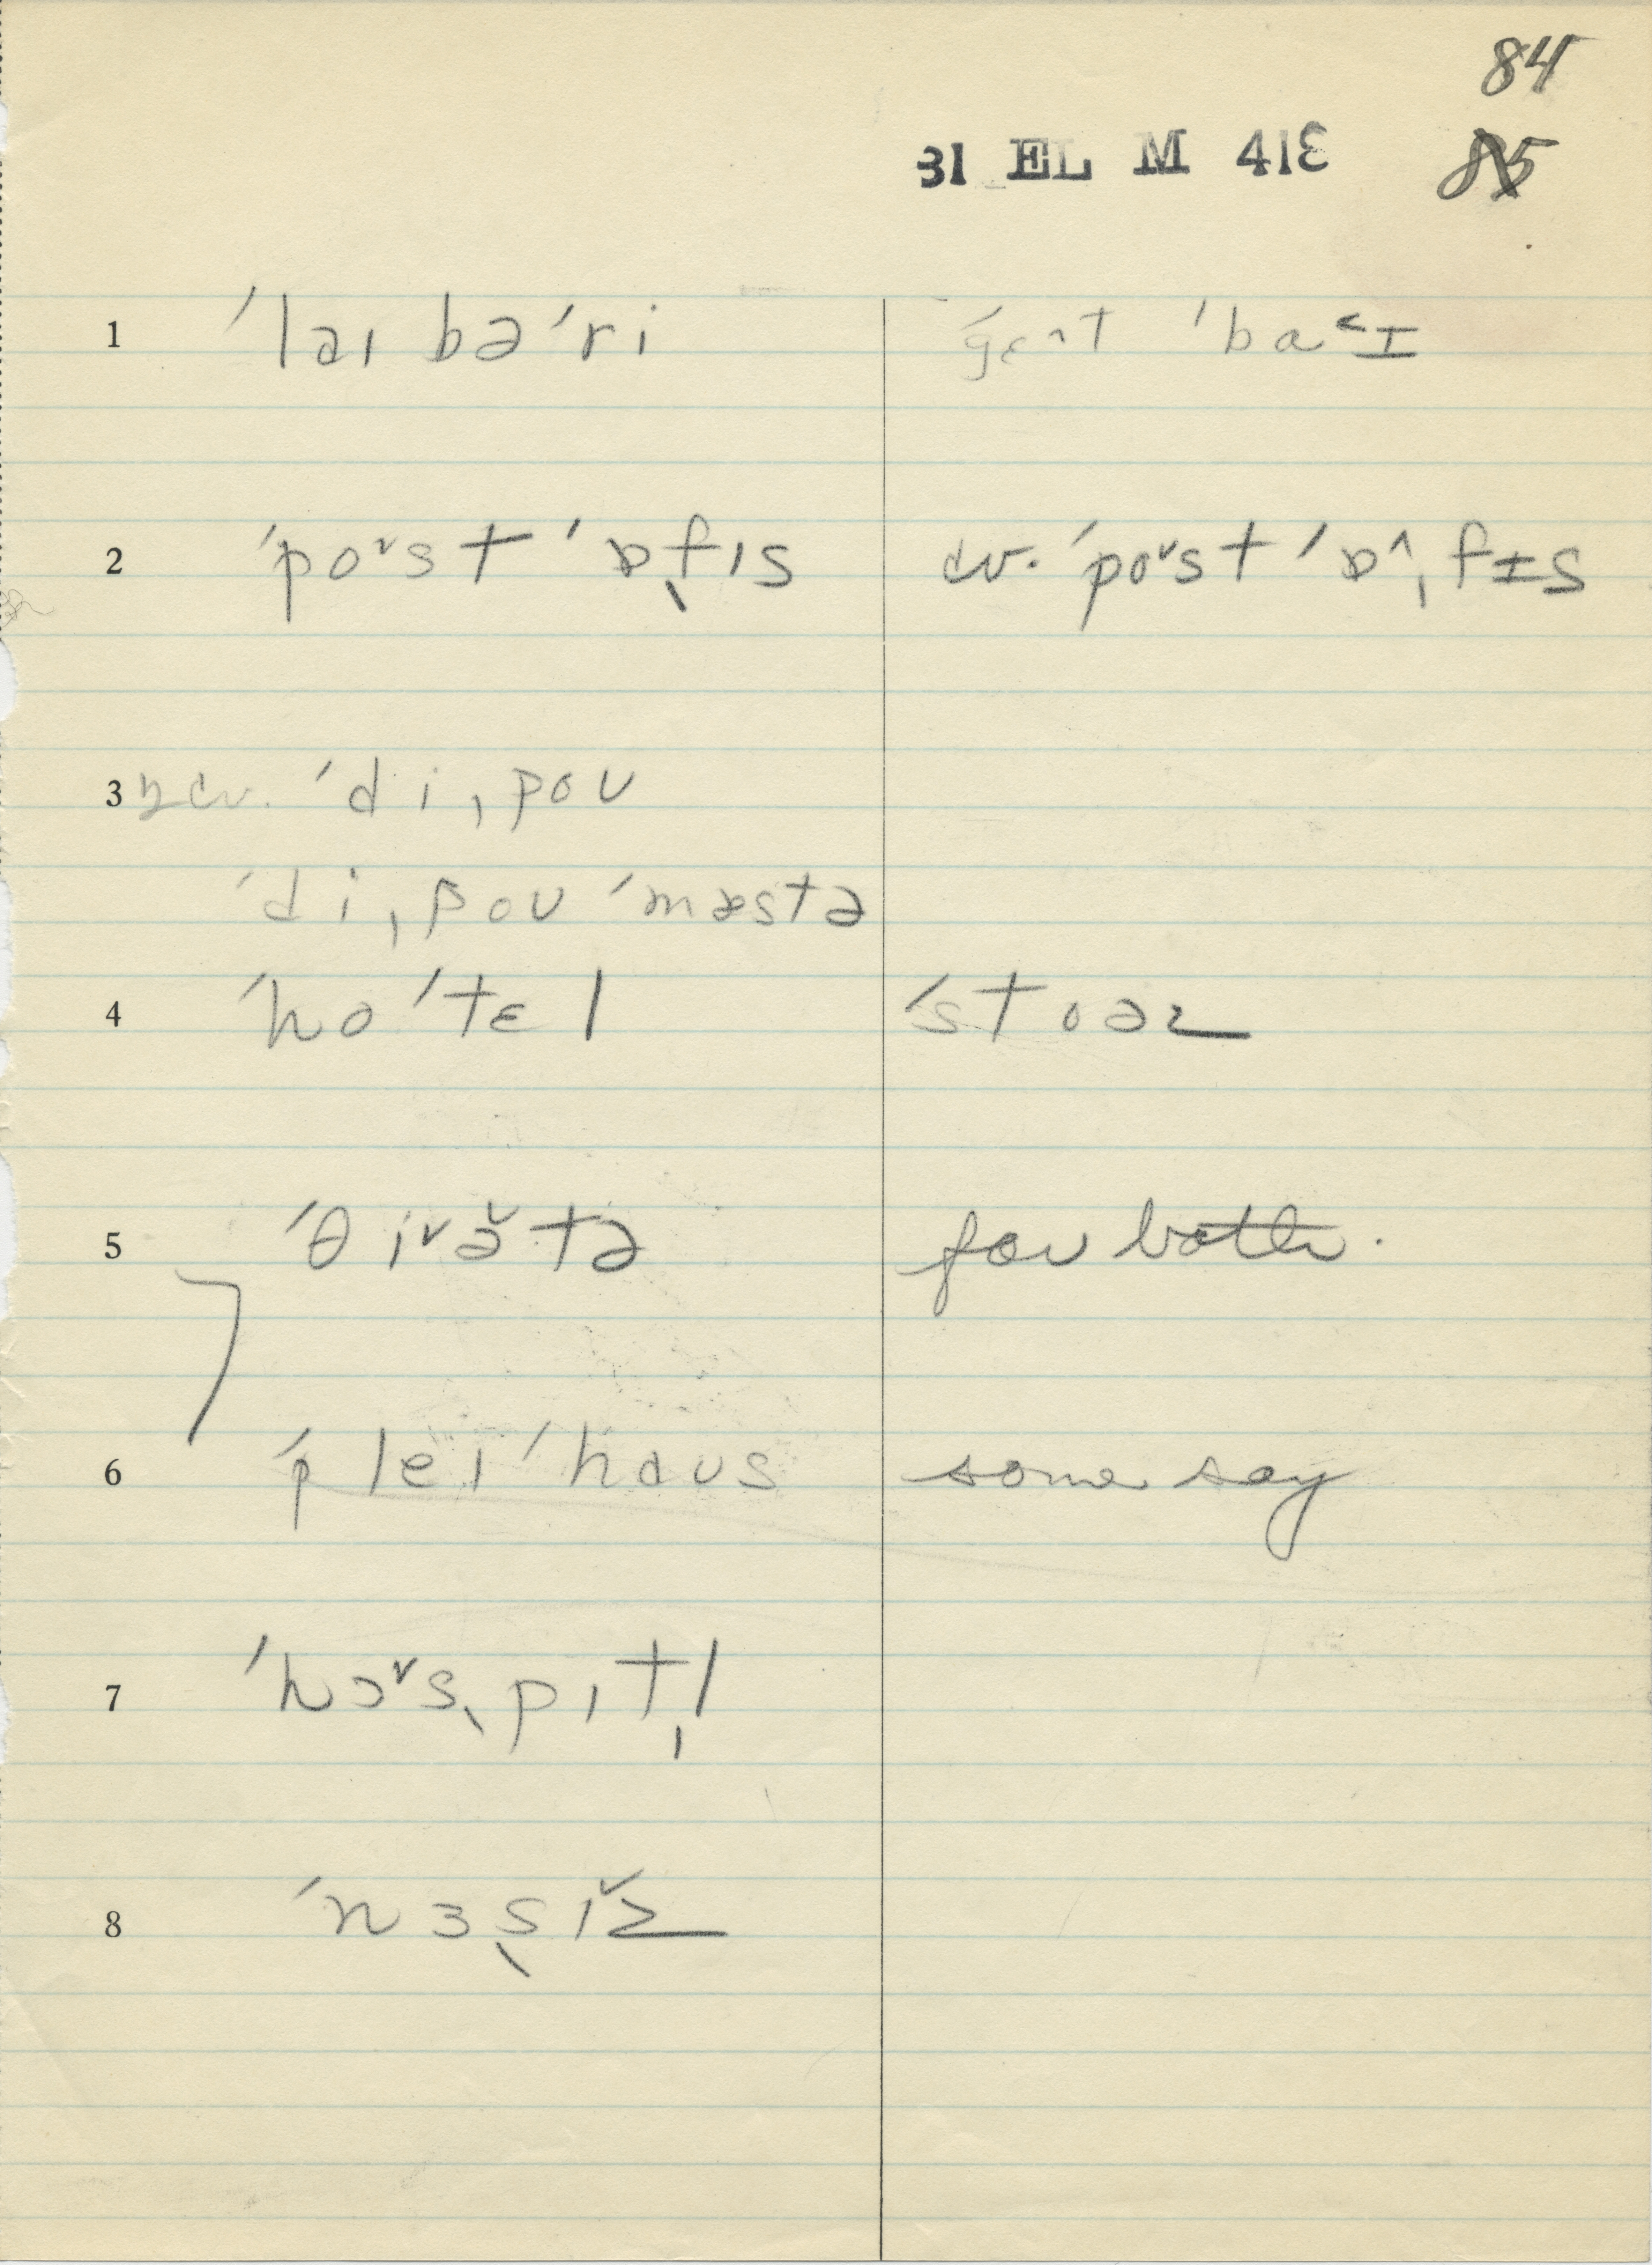 84
31 EL M 41E 85
1 ˈlaɪ bəˈri gɛ^t ˈba˂ɪ
2 ˈpo˅st ˈɒˌfɪs cv. ˈpo˅st ˈɒ^ˌfɪs
3 cv. ˈdiˌpoʊ
ˈdiˌpoʊ ˈmæstə
4 ˈhoˈtɛl ˈstoəz
5 ˈθi˅ə̆tə for both.
6 ˈpleɪˈhaʊs some say
7 ˈhɔ˅sˌpɪtl̩
8 ˈnɜsɪ̆z